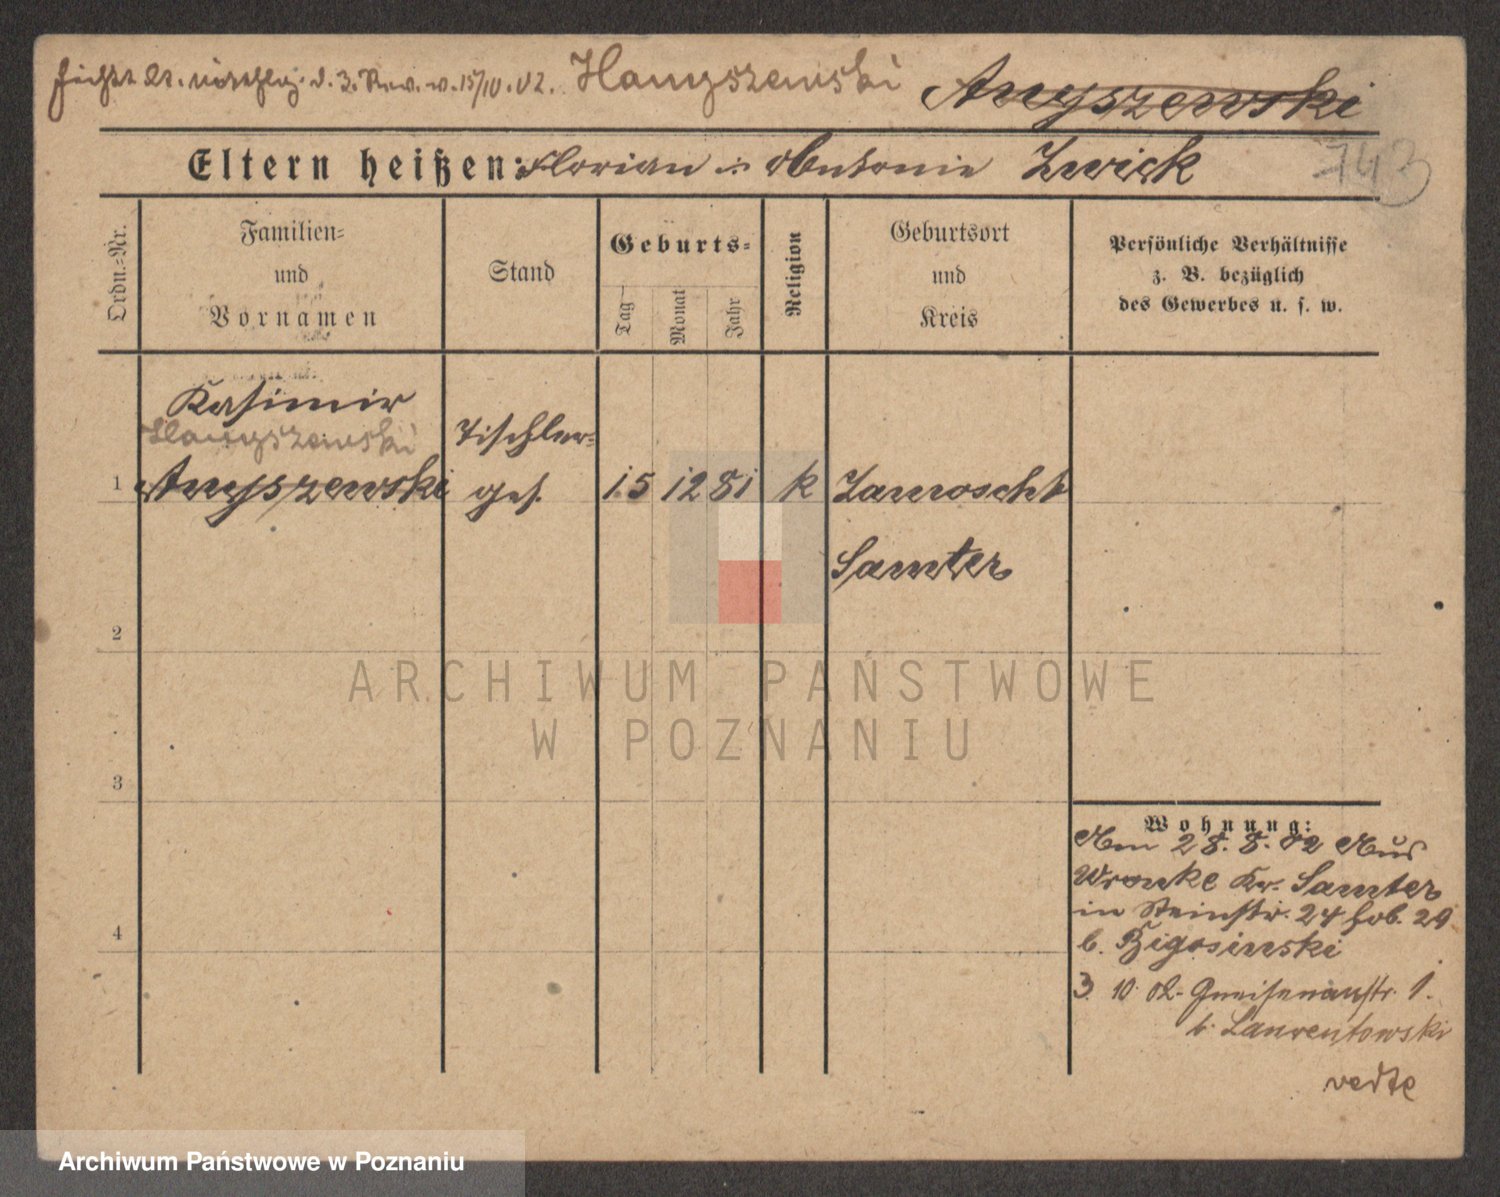 v. 15/10.02. Hanyszewski Anyszewski
Eltern heißen: Florian u Antonie Zwick
743
Ordn.=Nr.
Familien=
und
Vornamen
Stand
Geburts=
Tag
Monat
Jahr
Religion
Geburtsort
und
Kreis
Persönliche Verhältnisse
z. B. bezüglich
des Gewerbes u. s. w.
Kasimir
Hanyszewski
1 Anyszewski Tischler=
ges. 15 12 81 k Zamoscht
Samter
2
3
4
Wohnung:
Am 28.8.02 Aus
Wronke Kr. Samter
in Steinstr. 24
b. Bigosinski
3 10 02 Gneisenaustr. 1.
b. Laurentowski
vedte
ARCHIWUM PAŃSTWOWE
W POZNANIU
Archiwum Państwowe w Poznaniu